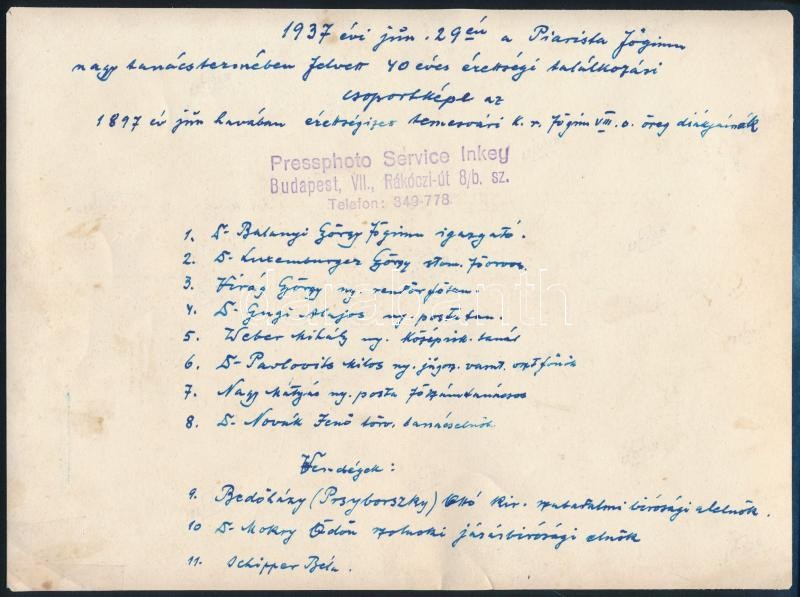 1937 évi jún. 29én a Piarista főgimn
nagy tanácstermében felvett 40 éves érettségi találkozási
csoportképe az
1897 év jún havában érettségizett temesvári k. r. főgim VIII. o. öreg diákjainak
Pressphoto Service Inkey
Budapest, VII., Rákóczi-út 8/b. sz.
Telefon: 349-778.
1. Dr Balanyi György főgimn igazgató.
2. Dr Luxemburger György főorvos.
3. Virág György ny. rendőrfőtan.
4. Dr Gugi Alajos ny. postatan.
5. Weber Mihály ny. középisk. tanár
6. Dr Pavlovits Milos ny. vasút. osztfőnök
7. Nagy Mátyás ny. posta főszámtanácsos
8. Dr Novák Jenő törv. tanácselnök
Vendégek:
9. Bedőházy (Przyborszky) Ottó kir. szabadalmi bírósági alelnök.
10 Dr Mokry Ödön szolnoki járásbírósági elnök
11. Schipper Béla.
darabanth